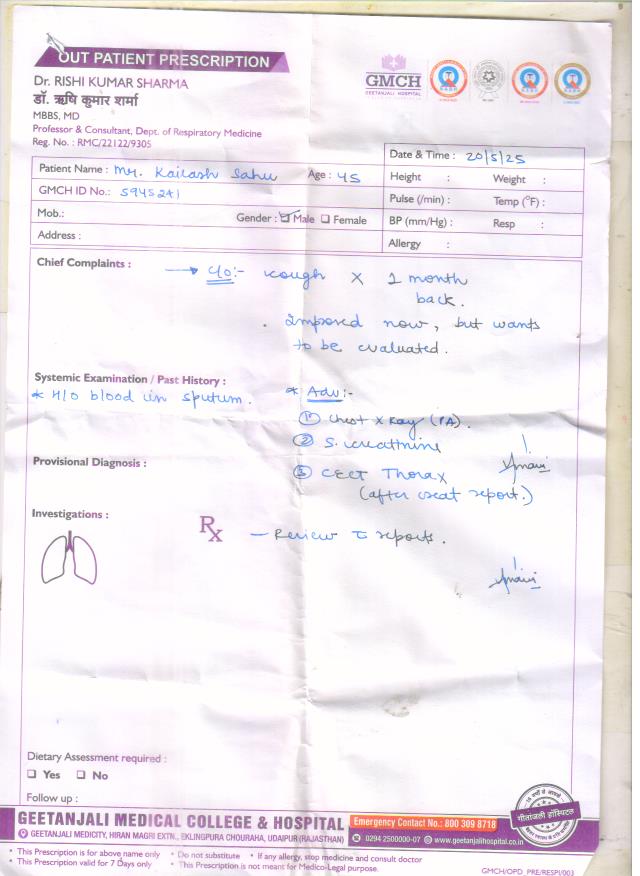 OUT PATIENT PRESCRIPTION
Dr. RISHI KUMAR SHARMA
डॉ. ऋषि कुमार शर्मा
MBBS, MD
Professor & Consultant, Dept. of Respiratory Medicine
Reg. No. : RMC/22122/9305
GMCH
GEETANJALI HOSPITAL
Patient Name : Mr. Kailash Sahu Age : 45
GMCH ID No.: 5945241
Mob.: Gender : Male Female
Address :
Date & Time : 20/5/25
Height : Weight :
Pulse (/min) : Temp (°F) :
BP (mm/Hg) : Resp :
Allergy :
Chief Complaints :
→ c/o:- cough X 1 month
back.
. Improved now, but wants
to be evaluated.
Systemic Examination / Past History :
* H/O blood in sputum.
* Adv:-
① Chest X Ray (PA).
② S. creatinine
③ CECT Thorax
(after creat report.)
Provisional Diagnosis :
Investigations :
Rx — Review c̄ reports.
Dietary Assessment required :
Yes No
Follow up :
गीतांजली हॉस्पिटल
GEETANJALI MEDICAL COLLEGE & HOSPITAL
Emergency Contact No.: 800 309 8718
GEETANJALI MEDICITY, HIRAN MAGRI EXTN., EKLINGPURA CHOURAHA, UDAIPUR (RAJASTHAN)
0294 2500000-07 www.geetanjalihospital.co.in
• This Prescription is for above name only • Do not substitute • If any allergy, stop medicine and consult doctor
• This Prescription valid for 7 Days only • This Prescription is not meant for Medico-Legal purpose.
GMCH/OPD_PRE/RESPI/003